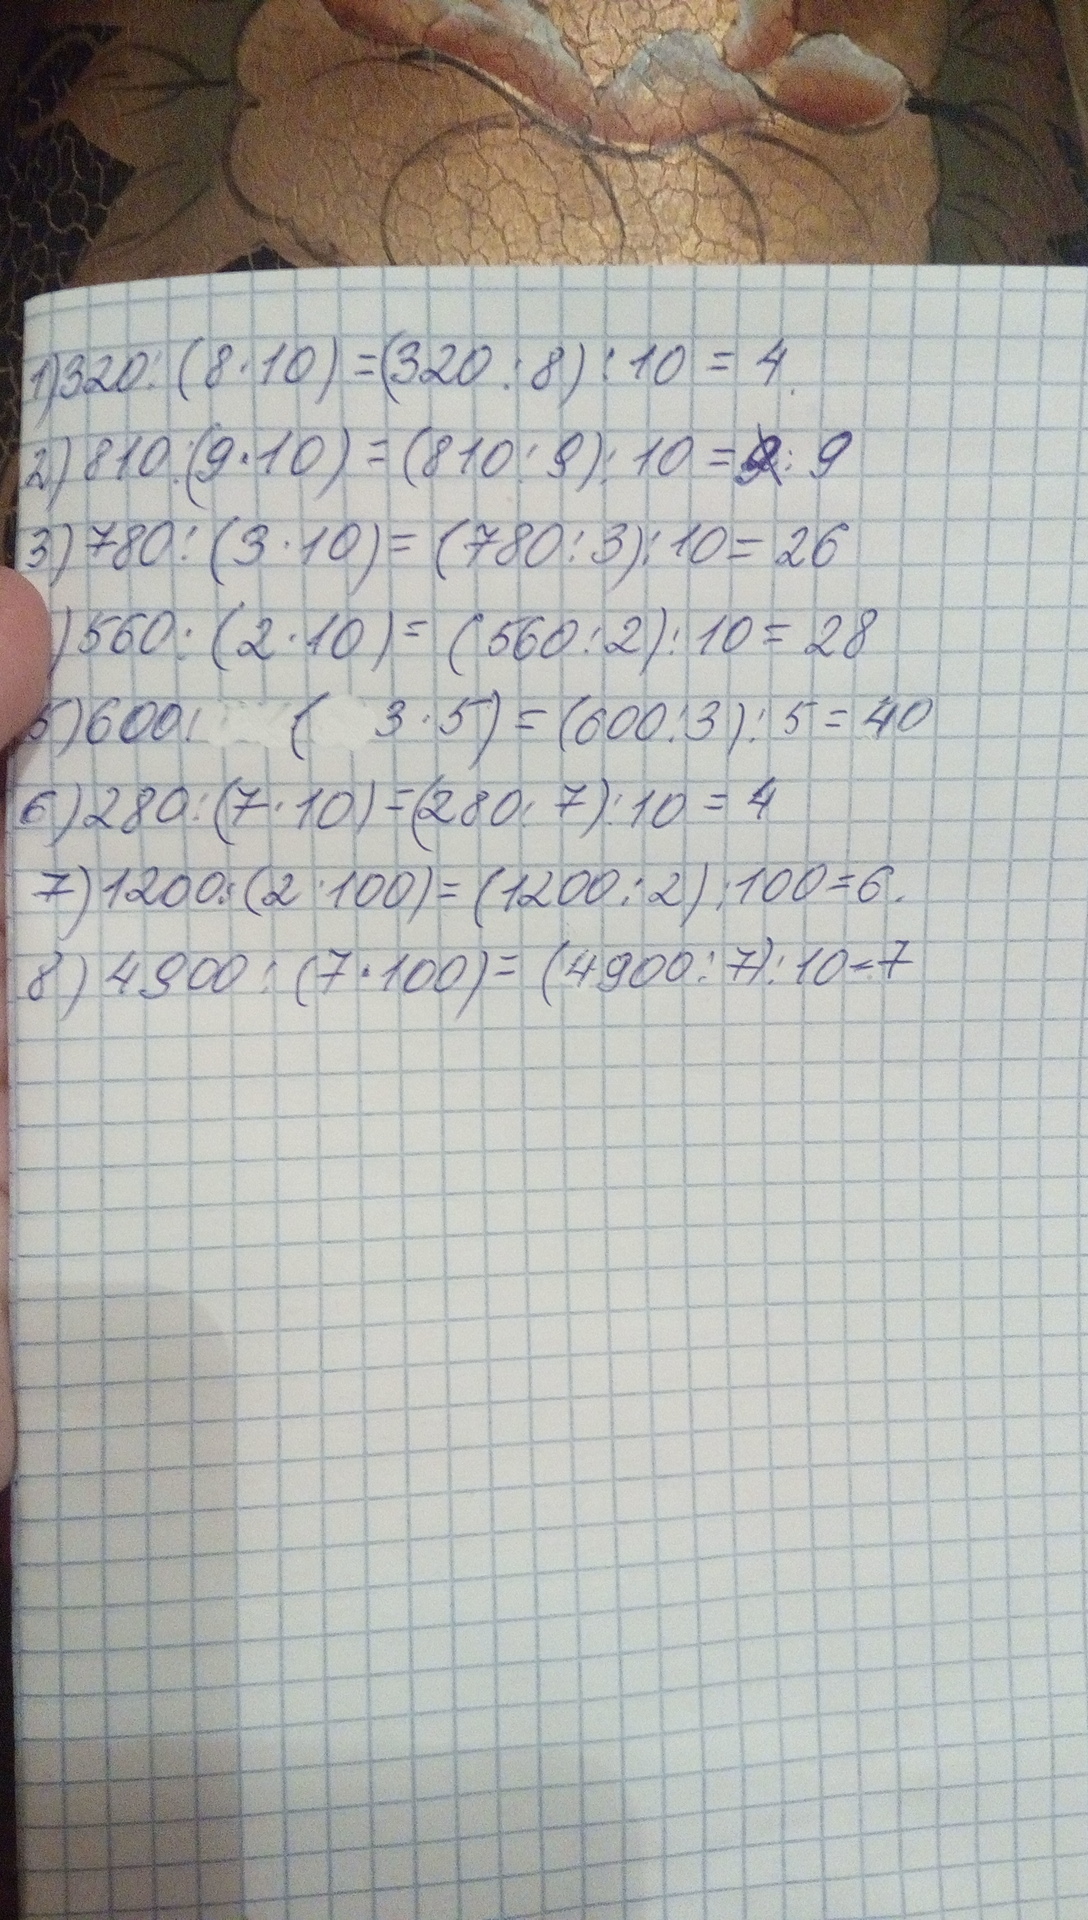 1) 320 : (8 · 10) = (320 : 8) : 10 = 4.
2) 810 : (9 · 10) = (810 : 9) : 10 = : 9
3) 780 : (3 · 10) = (780 : 3) : 10 = 26
) 560 : (2 · 10) = (560 : 2) : 10 = 28
5) 600 : ( 3 · 5) = (600 : 3) : 5 = 40
6) 280 : (7 · 10) = (280 : 7) : 10 = 4
7) 1200 : (2 · 100) = (1200 : 2) : 100 = 6.
8) 4900 : (7 · 100) = (4900 : 7) : 10 = 7